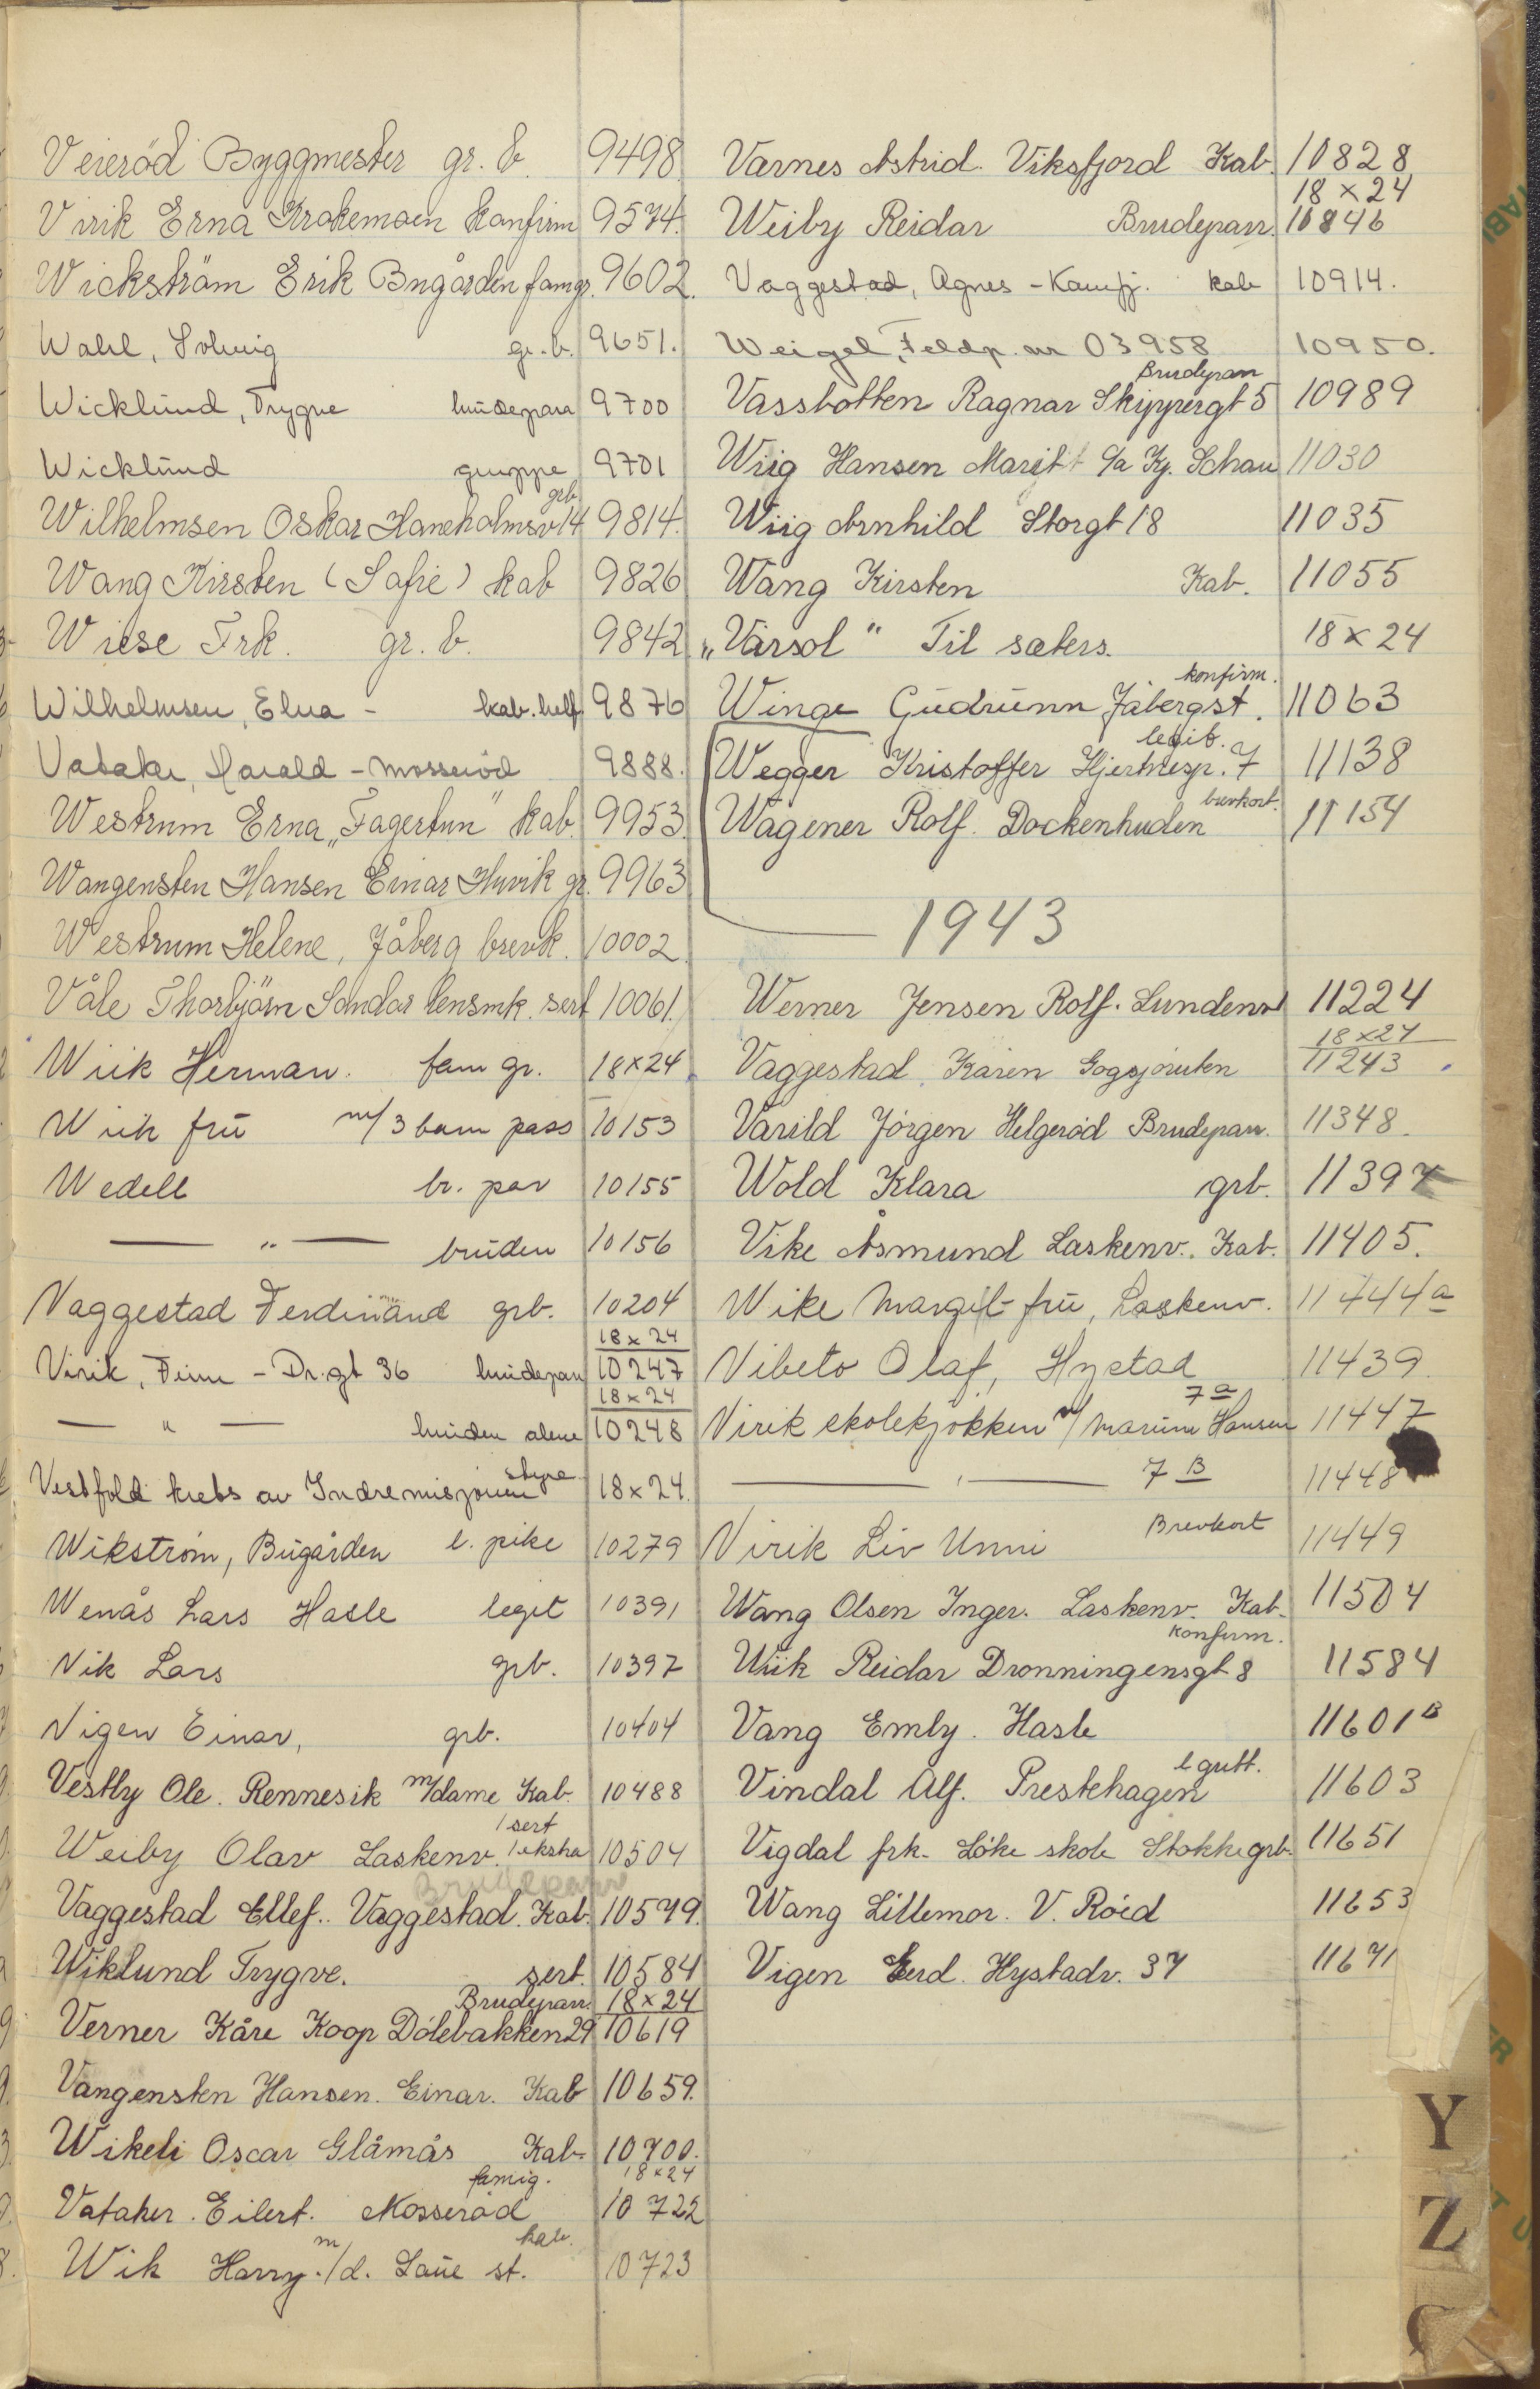 Veieröd Byggmester gr. b. 9498
Virik Erna Krokemoen konfirm 9574.
Wickström Erik Bugården famgr. 9602.
Wahl, Solveig gr. b. 9651.
Wicklund, Trygve brudepar 9700
Wicklund gruppe 9701
grb
Wilhelmsen Oskar Haneholmsv 14 9814.
Wang Kirsten (Safie) kab 9826
Wiese Frk. gr. b. 9842
Wilhelmsen, Elna - kab. helf 9876
Vataker, Harald - Mosseröd 9888.
Westrum Erna "Fagertun" kab. 9953
Wangensten Hansen Einar Hyvik gr. 9963
Westrum Helene, Jåberg brevk. 10002.
Våle Thorbjörn Sandar lensmk. sert 10061.
Wiik Herman. fam gr. 18x24
Wiik frū m/3 barn pass 10153
Wedell br. par 10155
— " — brūden 10156
Vaggestad Ferdinand grb. 10204
18x24
Virik, Finn - Dr.gt 36 brūdepar 10247
18x24
— " — brūden alene 10248
styre
Vestfold krets av Indremisjonen 18x24.
Wikström, Būgården l. pike 10279
Wenås Lars Hasle legit 10391
Vik Lars grb. 10397
Vigen Einar, grb. 10404
Vestly Ole. Rennesik m/dame Kab. 10488
1 sert
Weiby Olav Laskenv. 1 ekstra 10504
Brudepar
Vaggestad Ellef.. Vaggestad. Kab. 10579.
Wiklund Trygve. sert. 10584
Brudeparr. 18x24
Verner Kåre Koop Dölebakken 29 10619
Vangensten Hansen. Einar. Kab 10659.
Wikeli Oscar Glåmås Kab. 10700.
famig. 18x24
Vataker. Eilert. Mosseröd 10722
kab.
Wik Harry. m/d. Laūe st. 10723
Varnes Astrid. Viksfjord Kab. 10828
18x24
Weiby Reidar Brudeparr. 10846
Vaggestad, Agnes - Kamfj. kab 10914.
Weigel, Feldp. nr 03958 10950.
Brudeparr
Vassbotten Ragnar Skippergt 5 10989
Wiig Hansen Marit c/a Kj. Schau 11030
Wiig Arnhild Storgt 18 11035
Wang Kirsten Kab. 11055
"Vårsol" Til sæters. 18x24
konfirm.
Winge Gūdrūnn Jåbergst. 11063
legit.
Wegger Kristoffer Hjertnespr. 7 11138
brevkort.
Wågener Rolf. Dockenhuden 11154
1943
Werner Jensen Rolf. Lundenv 11224
18x24
Vaggestad Karen Gogsjøruten 11243
Varild Jörgen Helgeröd Brudeparr. 11348.
Wold Klara grb. 11397
Vike Åsmund Laskenv.. Kab. 11405.
Wike Margit frū, Laskenv. 11444a
Vibeto Olaf, Hystad 11439.
7 a
Virik skolekjökken m/ Marūm Hansen 11447
— " — 7 B 11448
Virik Liv Unni Brevkort 11449
Wang Olsen Inger. Laskenv. Kab. 11504
konfirm.
Wiik Reidar Dronningensgt 8 11584
Vang Emly. Hasle 11601 B
l gutt.
Vindal Alf. Prestehagen 11603
Vigdal frk. Löke skole Stokke grb. 11651
Wang Lillemor. V. Röed 11653
Vigen Gerd. Hystadv. 37 11671
Y
Z